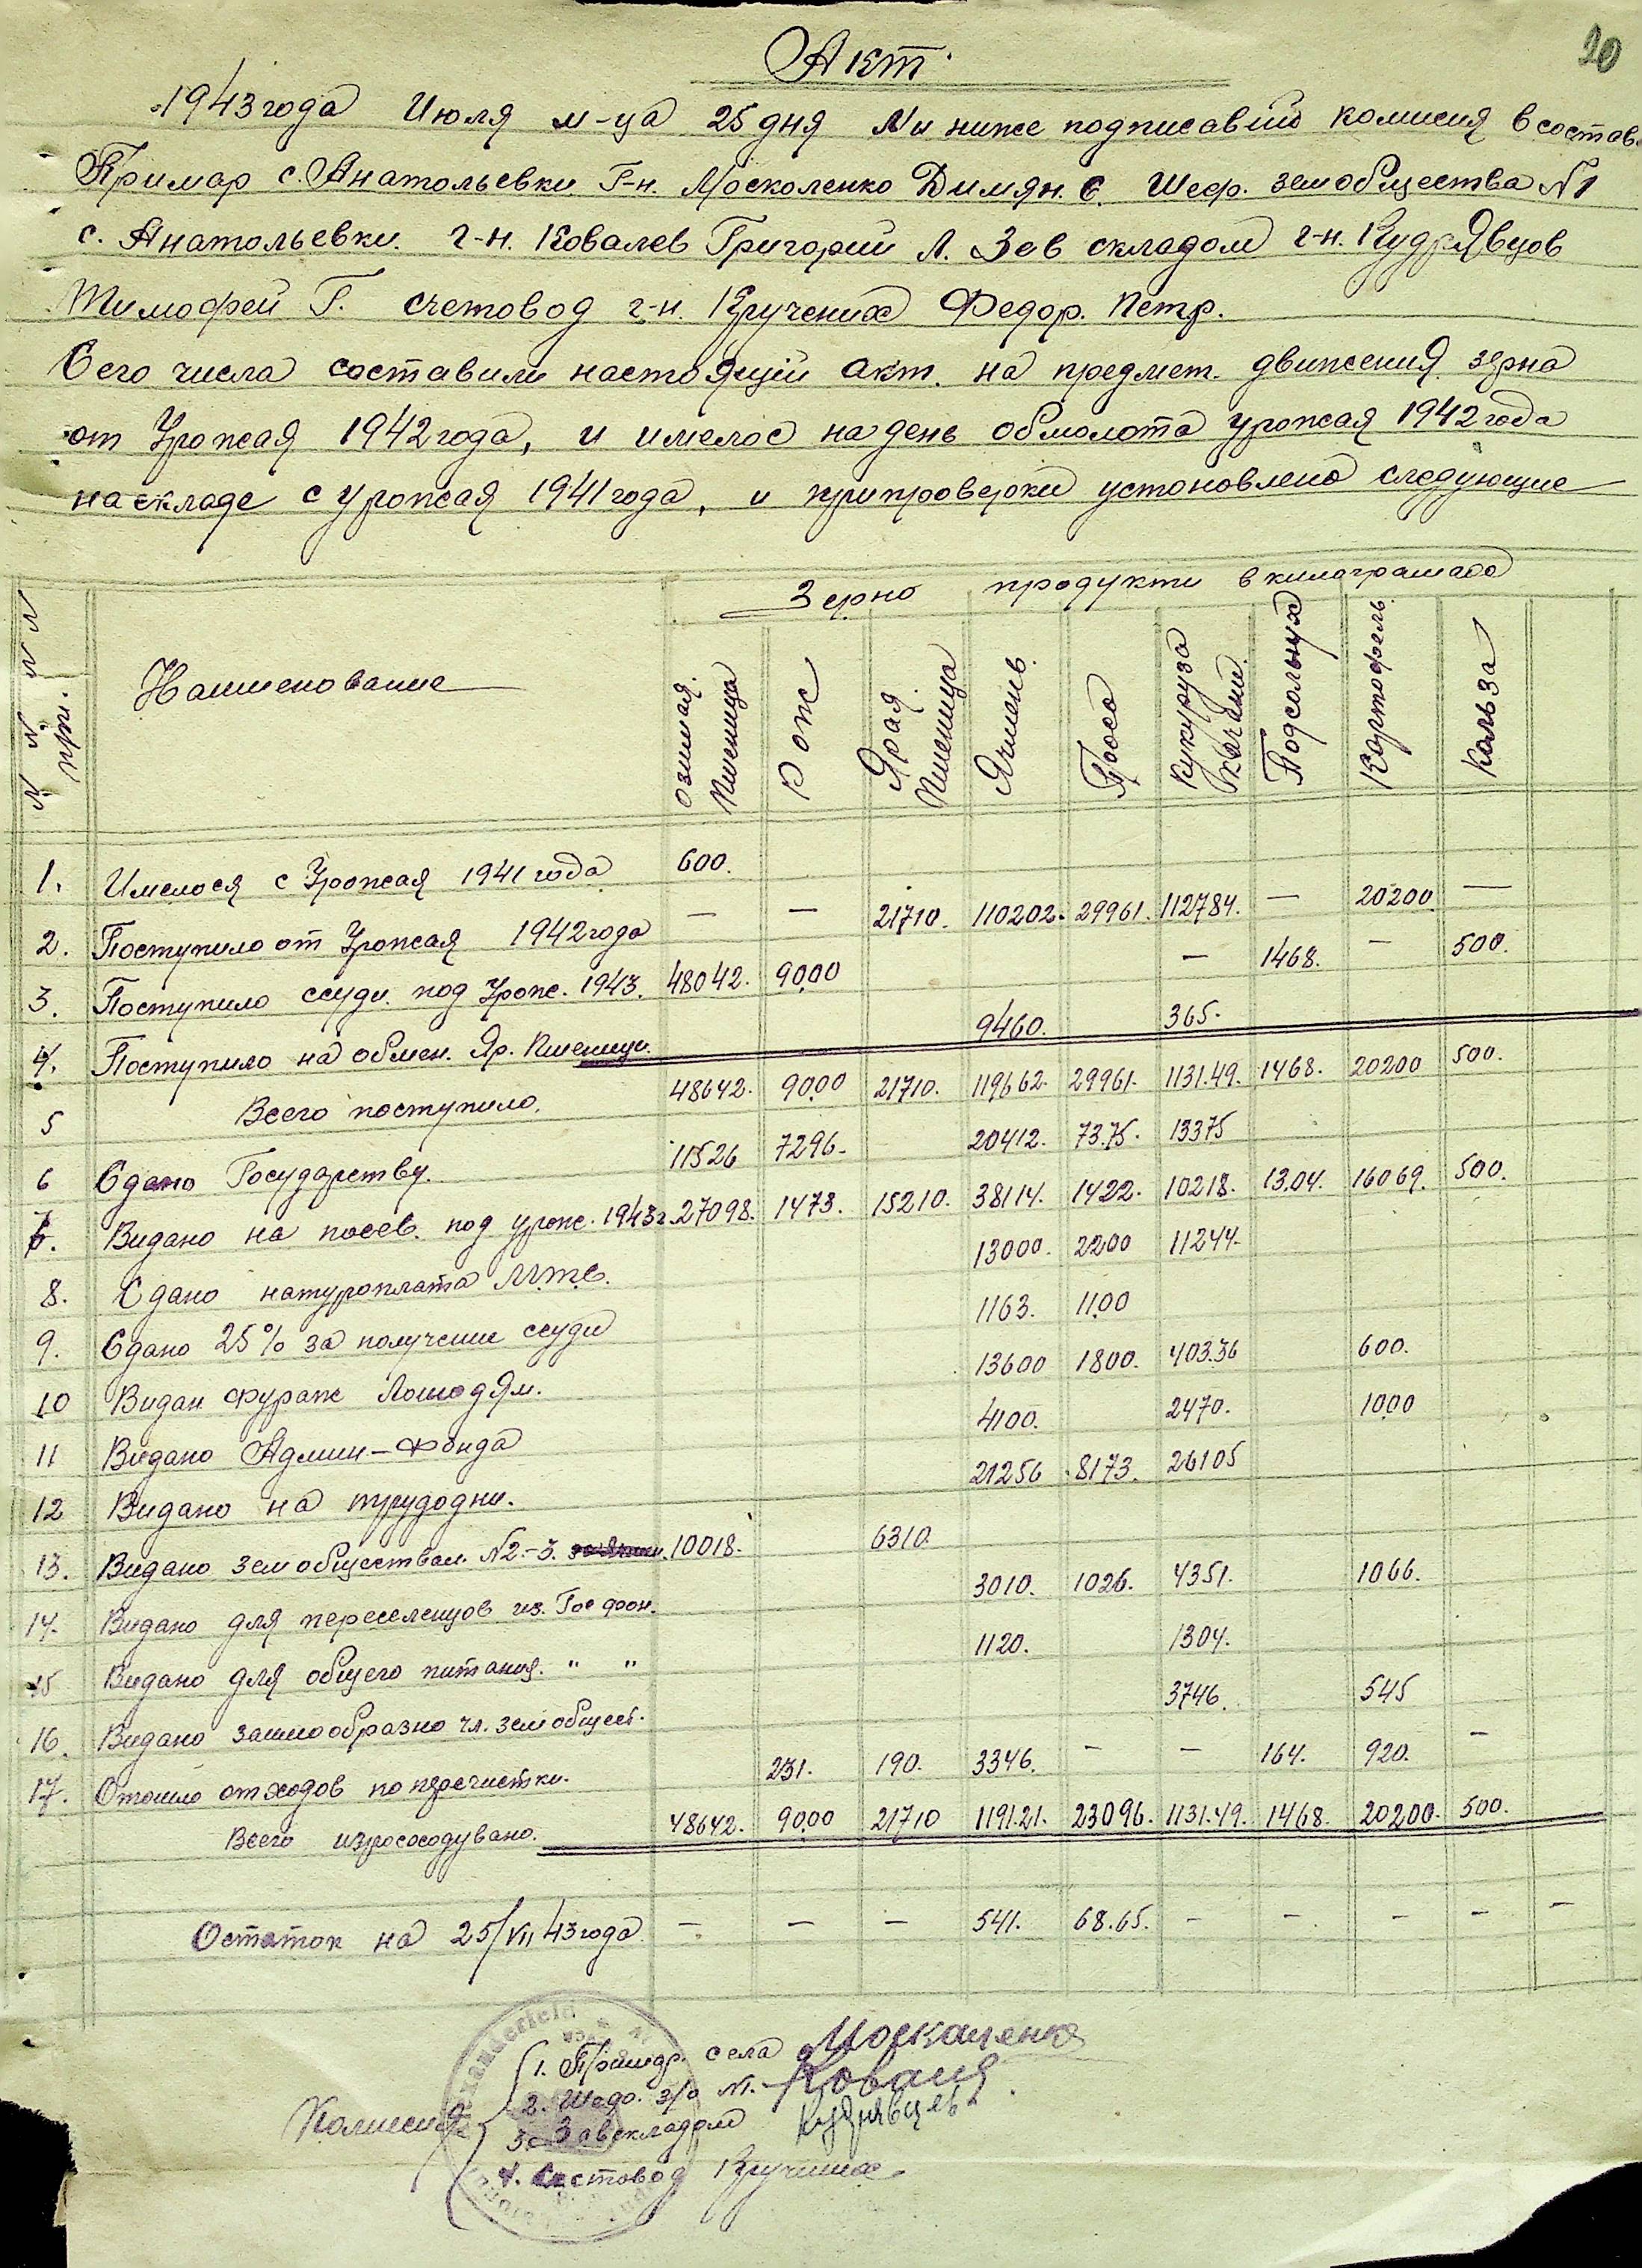 20
Акт.
1943 года Июля м-ца 25 дня Мы ниже подписавшие комисия в состав.
Примар с. Анатольевки Г-н. Москоленко Димян. С. Шеф. земобщества №1
с. Анатольевки. г-н. Ковалев Григорий Л. Зав складом г-н. Кудрявцов
Тимофей Г. счетовод г-н. Кручених Федор. Петр.
Сего числа составили настоящий акт. на предмет. движения зерна
от Урожая 1942 года, и имелос на день обмолота урожая 1942 года
на складе с урожая 1941 года, и припроверки устоновлено следующие
Зерно продукти в килограмах
N N N N N пр. Наименование озимая. Пшеница Рож Ярая. Пшеница Ячмень. Просо Кукуруза Качани. Подсолнух Картофель. Кользa
1. Имелося с Урожая 1941 года 600.
2. Поступило от Урожая 1942 года — — 21710. 110202. 29961. 112784. — 20200 —
3. Поступило ссуди. под Урож. 1943. 48042. 90.00 — 1468. — 500.
4. Поступило на обмен. Яр. Пшеници. 9460. 365.
5 Всего поступило. 48642. 90.00 21710. 119662. 29961. 1131.49. 1468. 20200 500.
6 Сдано Государству. 11526 7296. 20412. 73.75. 13375
7. Видано на посев. под урож. 1943 г. 27098. 1473. 15210. 38114. 1422. 10218. 13.04. 16069. 500.
8. Сдано натуроплата М.Т.С. 13000. 2200 11244.
9. Сдано 25% за получение ссуди 1163. 11.00
10 Видан фураж Лошодям. 13600 1800. 403.36 600.
11 Видано Админ-Фонда 4100. 2470. 10.00
12 Видано на трудодни. 21256 8173. 26105
13. Видано земобществам. N2.-3. 10018. 6310.
14. Видано для переселенцов из. Гос фон. 3010. 1026. 4351. 1066.
15 Видано для общего питания. " " 1120. 1304.
16. Видано заимообразно чл. земобщест. 3746. 545
17. Отошло отходов по прочистки. 231. 190. 3346. — — 164. 920. —
Всего изросоходувано. 48642. 90.00 21710 1191.21. 23096. 1131.49. 1468. 20200. 500.
Остаток на 25/VII 43 года — — — 541. 68.65. — — — — —
Комисия
1. Примар. села Москаленко
2. Шеф. з/о №1. Ковалев
3. Завскладом Кудрявцев
4. Счетовод Кручених